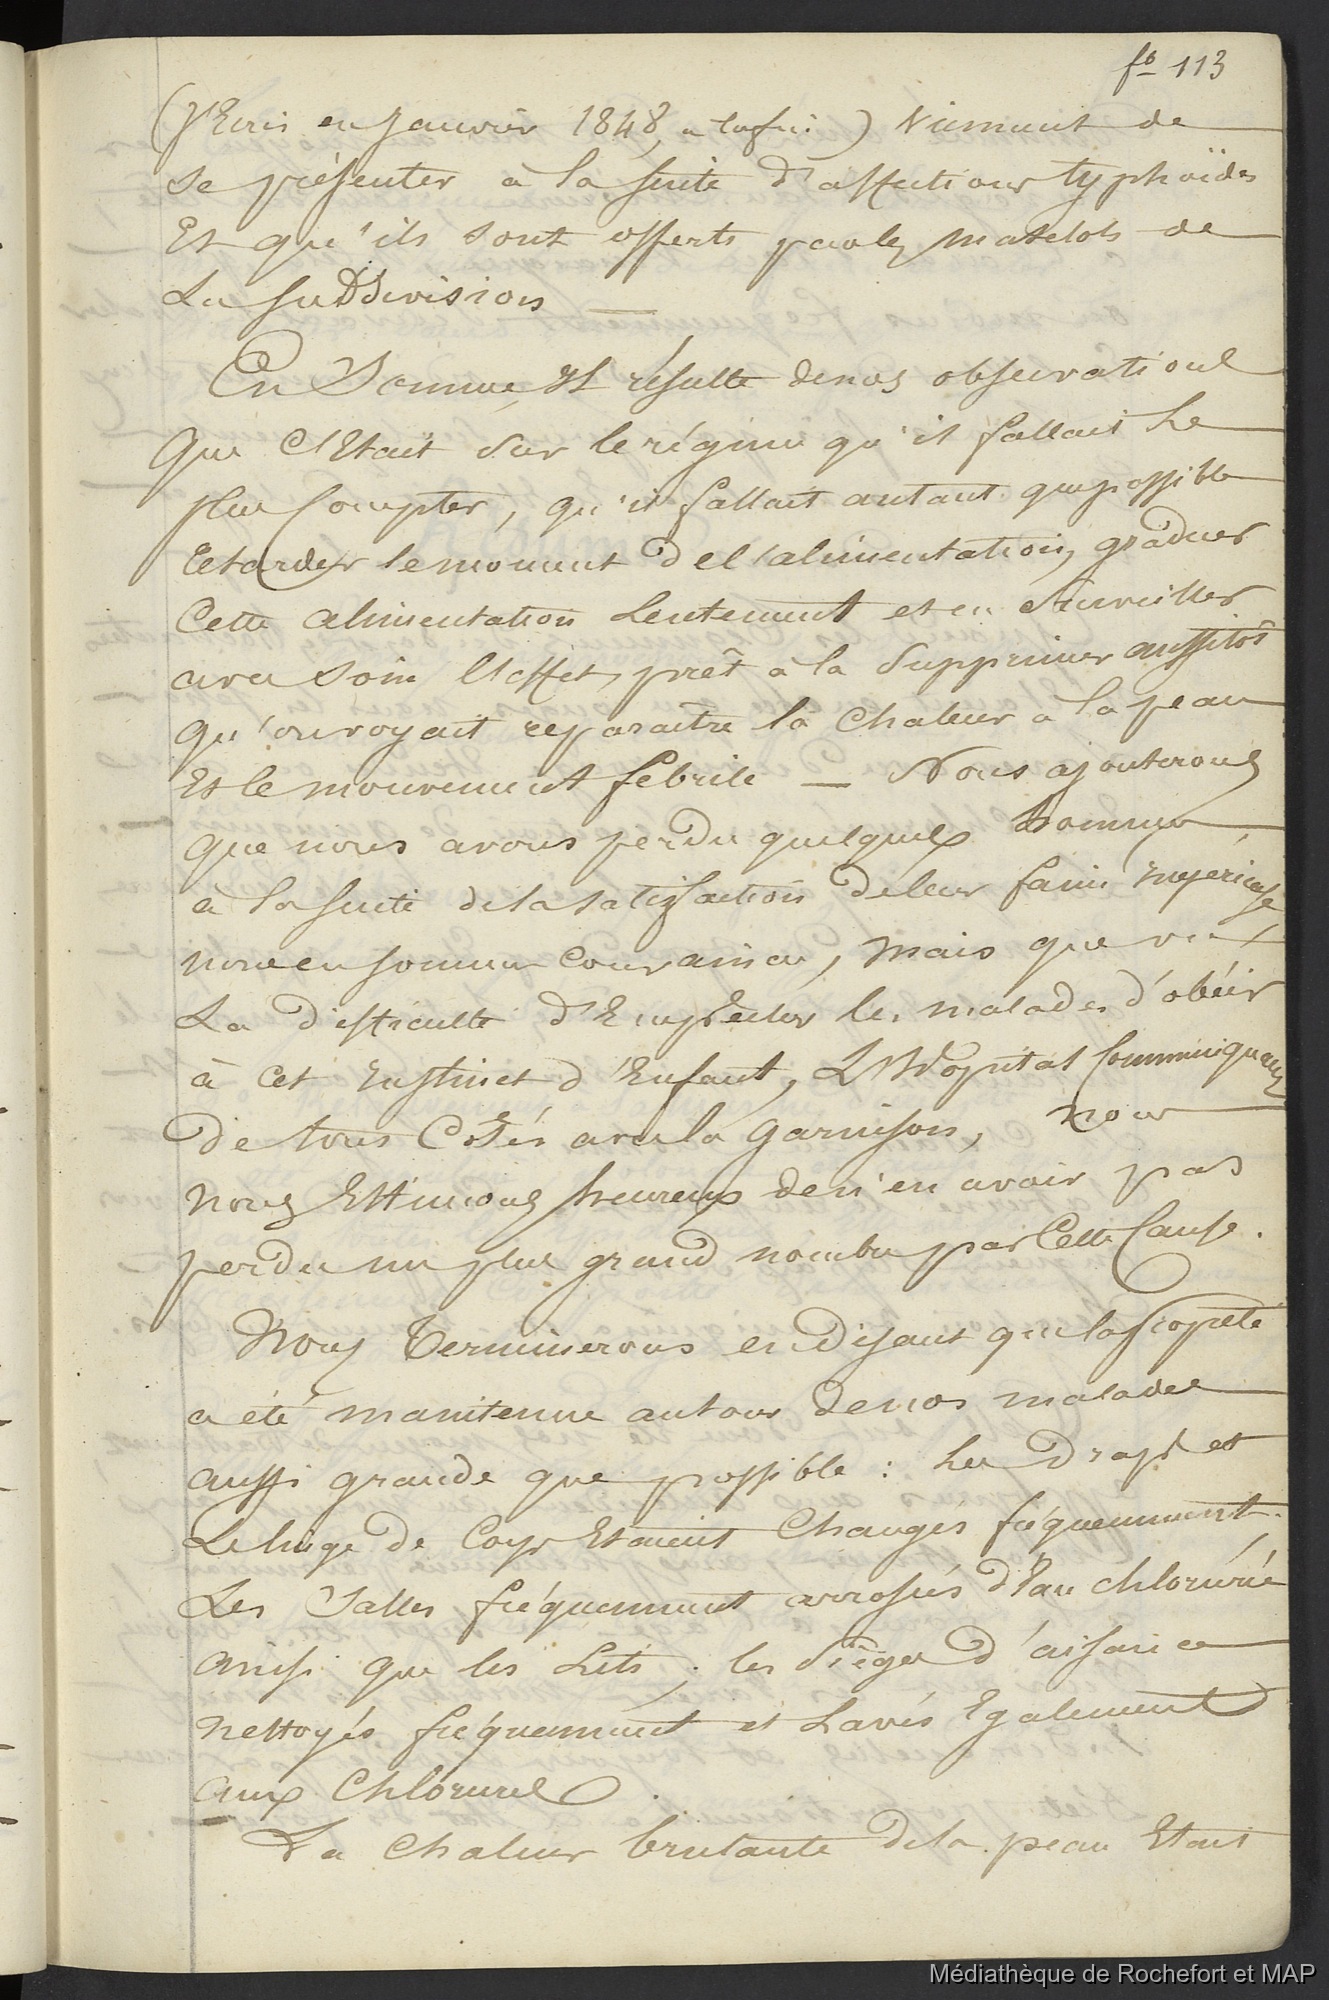 fo 113
(J'Ecris en Janvier 1848, a la fin) viennent de
se présenter à la suite d'affections typhoïdes
Et qu'ils sont offerts par les matelots de
La subdivision —
En Somme, Il résulte de nos observations
Que C'Etait sur le régime qu'il fallait Le
plus Compter, qu'il fallait autant que possible
Retarder le moment de l'alimentation, graduer
Cette alimentation Lentement et en Surveiller
avec soin l'effet, prêt à la Supprimer aussitôt
qu'on voyait reparaitre la Chaleur à la peau
Et le mouvement febrile — Nous ajouterons
que nous avons perdu quelques hommes
à la suite de la satisfaction de leur faim impérieuse
nous en sommes convaincu, mais que vu
La difficulté d'Empêcher les malades d'obéir
à cet Instinct d'Enfant, L'Hopital Communiquant
De tous Cotés avec la garnison, nous
nous Estimons heureux de n'en avoir pas
perdu un plus grand nombre par Cette Cause.
Nous Terminerons en disant que la propreté
a été maintenue autour de nos malades
aussi grande que possible : Les Draps et
Le linge de Corps Etaient Changés fréquemment.
Les Salles fréquemment arrosées d'Eau chlorurée
ainsi que les Lits, les Sièges d'aisance
nettoyés fréquemment et Lavés Egalement
aux Chlorures.
La chaleur brulante de la peau Etait
Médiathèque de Rochefort et MAP